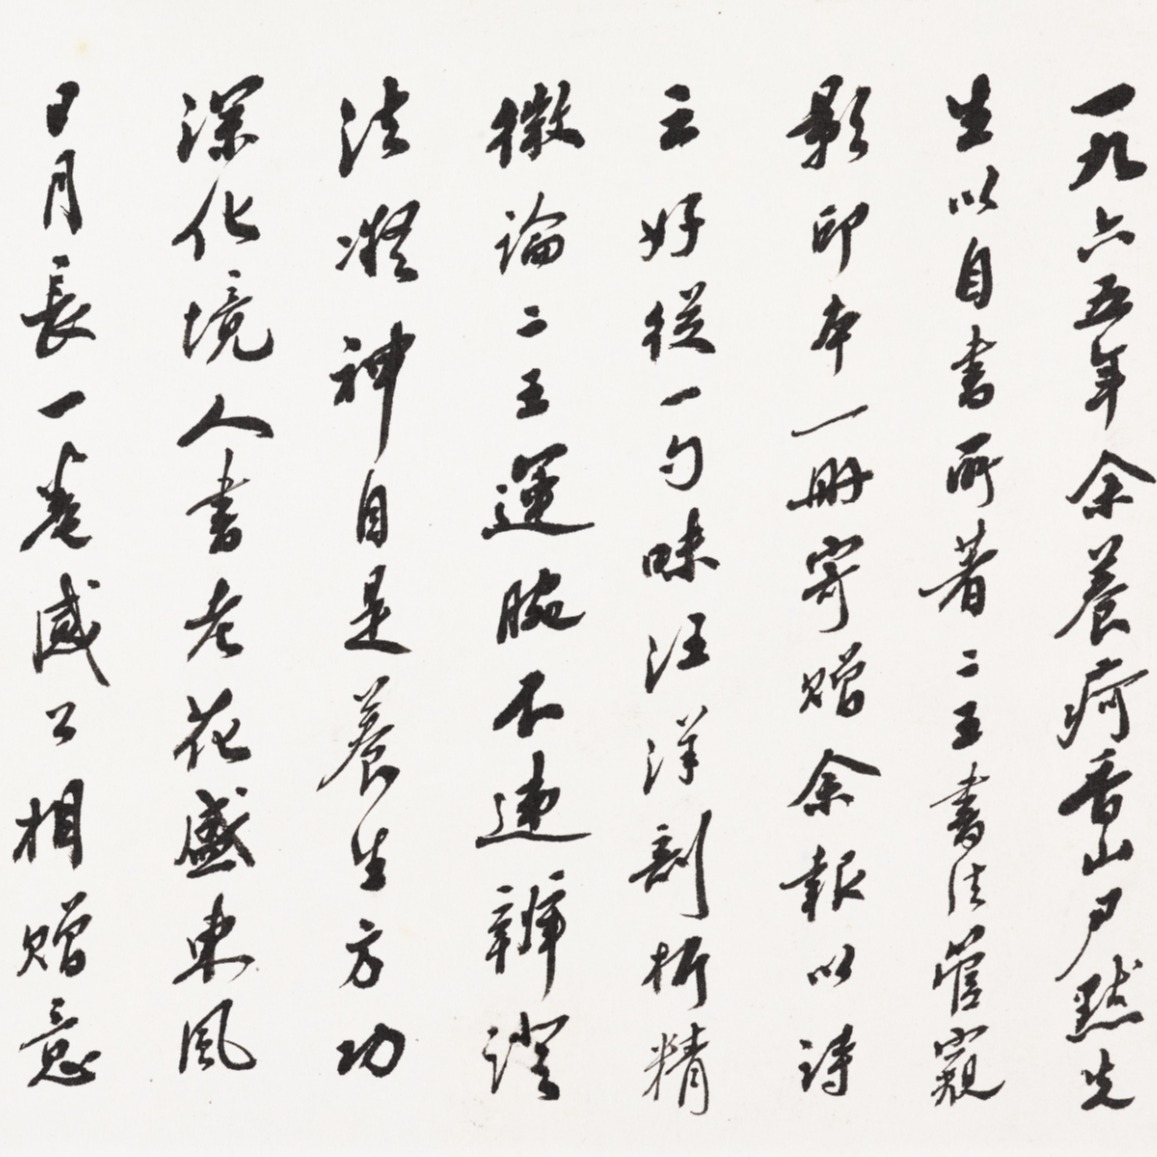 一九六五年余養疴香山尹默先
生以自書所著二王書法管窺
影印本一冊寄贈余報以詩
云好從一勺味汪洋剖析精
微論二王運腕不違辯證
法凝神自是養生方功
深化境人書老花盛東風
日月長一卷感公相贈意